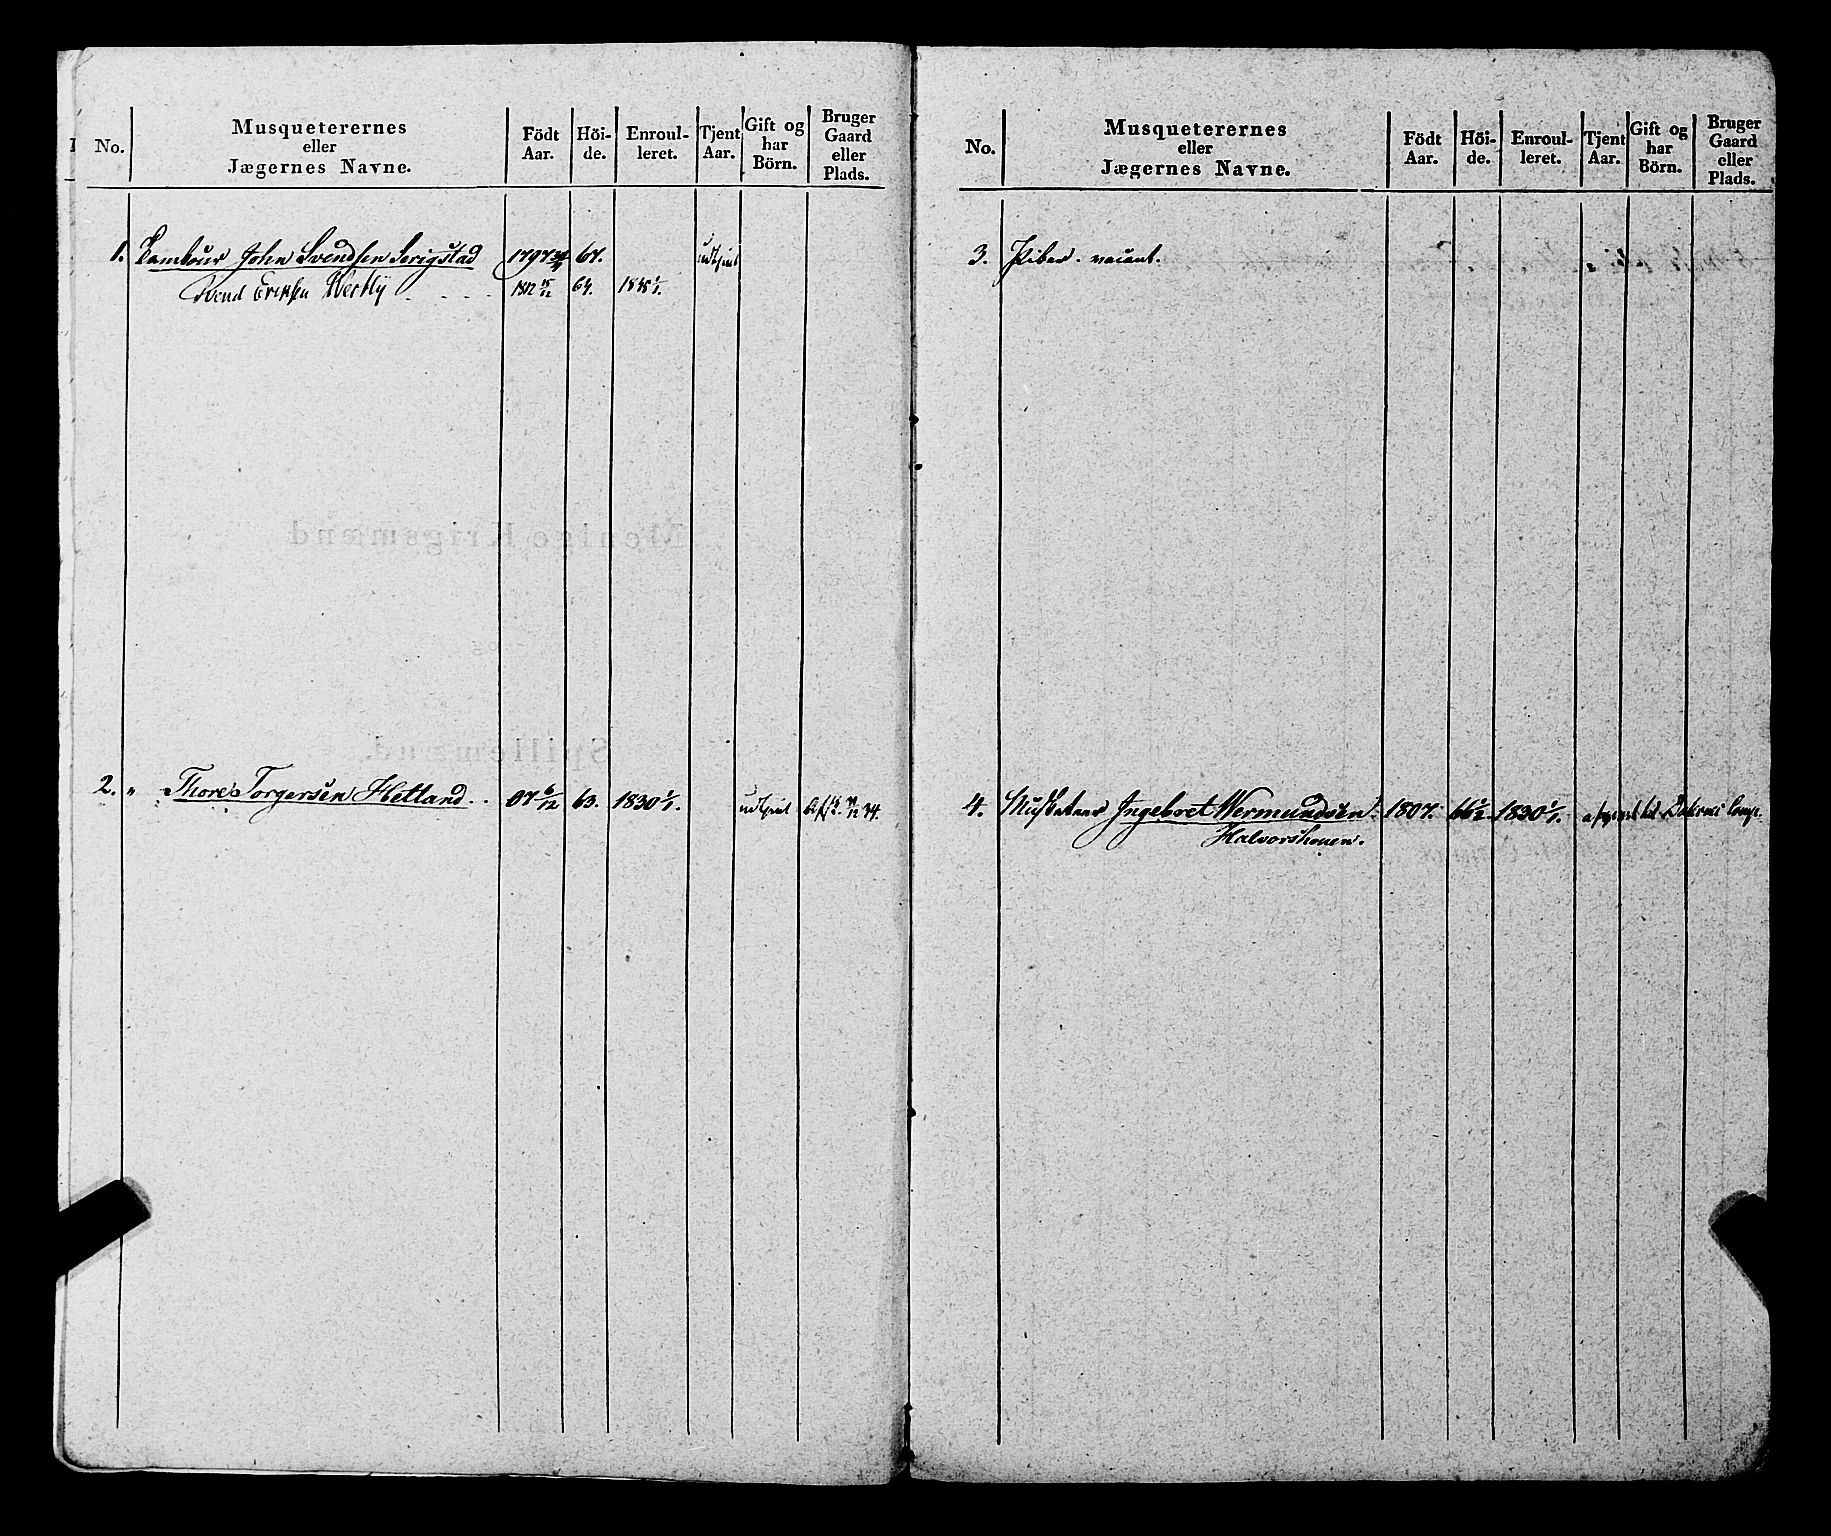 No.
Musqueterernes
eller
Jægernes Navne.
Födt
Aar.
Höi-
de.
Enroul-
leret.
Tjent
Aar.
Gift og
har
Börn.
Bruger
Gaard
eller
Plads.
1. Tambour John Svendsen Serigstad 1797 67. udtjent
Svend Eriksen Westly 1812 15/12 64. 1/1
2. " Thore Torgersen Hetland 07 6/12 63. 1830 1/1. udtjent 34.
No.
Musqueterernes
eller
Jægernes Navne.
Födt
Aar.
Höi-
de.
Enroul-
leret.
Tjent
Aar.
Gift og
har
Börn.
Bruger
Gaard
eller
Plads.
3. Piber. vacant.
4. Musketeer Ingebret Wermundsen 1807. 66 1/2 1830 1/1. til Comp.
Halvorshouen.
Menige Krigsmænd
Spillemænd.